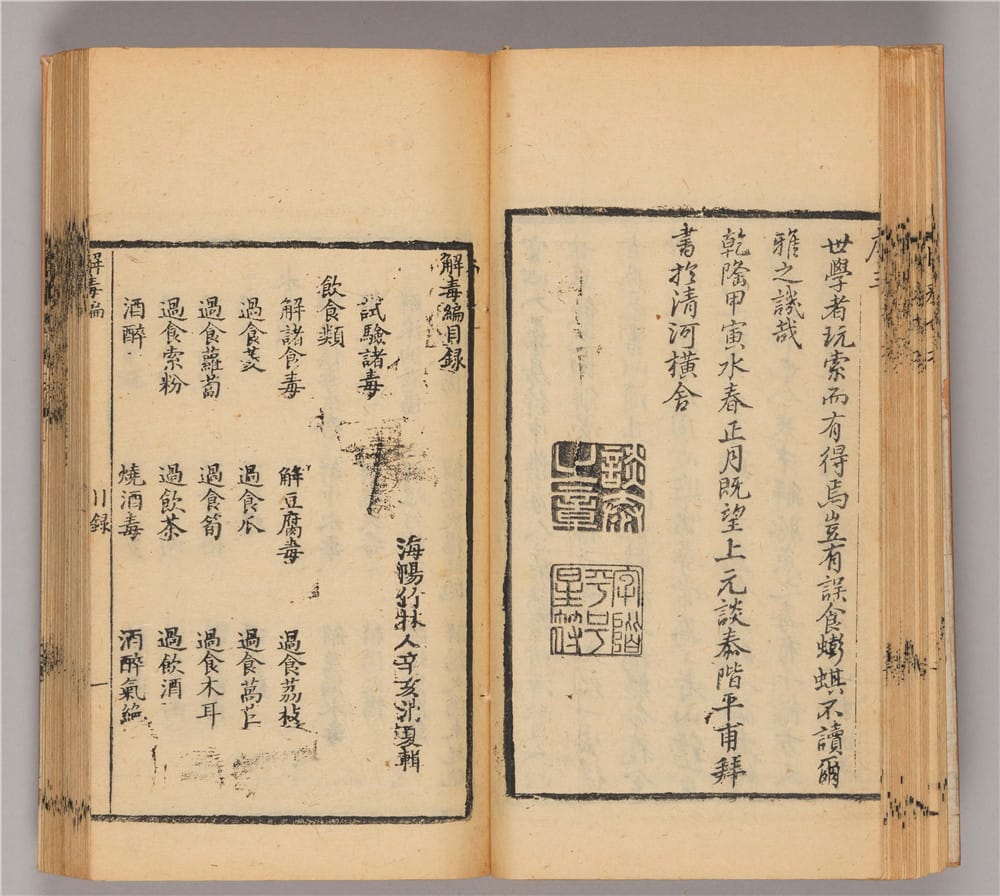 序 三
世學者玩索而有得焉豈有誤食蟛蜞不讀爾
雅之譏哉
乾隆甲寅水春正月既望上元談泰階平甫拜
書於清河橫舍
談泰之章
字階平號星符
解毒編目録
海陽竹林人辛亥消夏輯
試驗諸毒
飲食類
解諸食毒 解豆腐毒 過食荔枝
過食芡 過食瓜 過食菱
過食蘿蔔 過食筍 過食木耳
過食索粉 過飲茶 過飲酒
酒醉 燒酒毒 酒醉氣絶
解毒編
目録
一